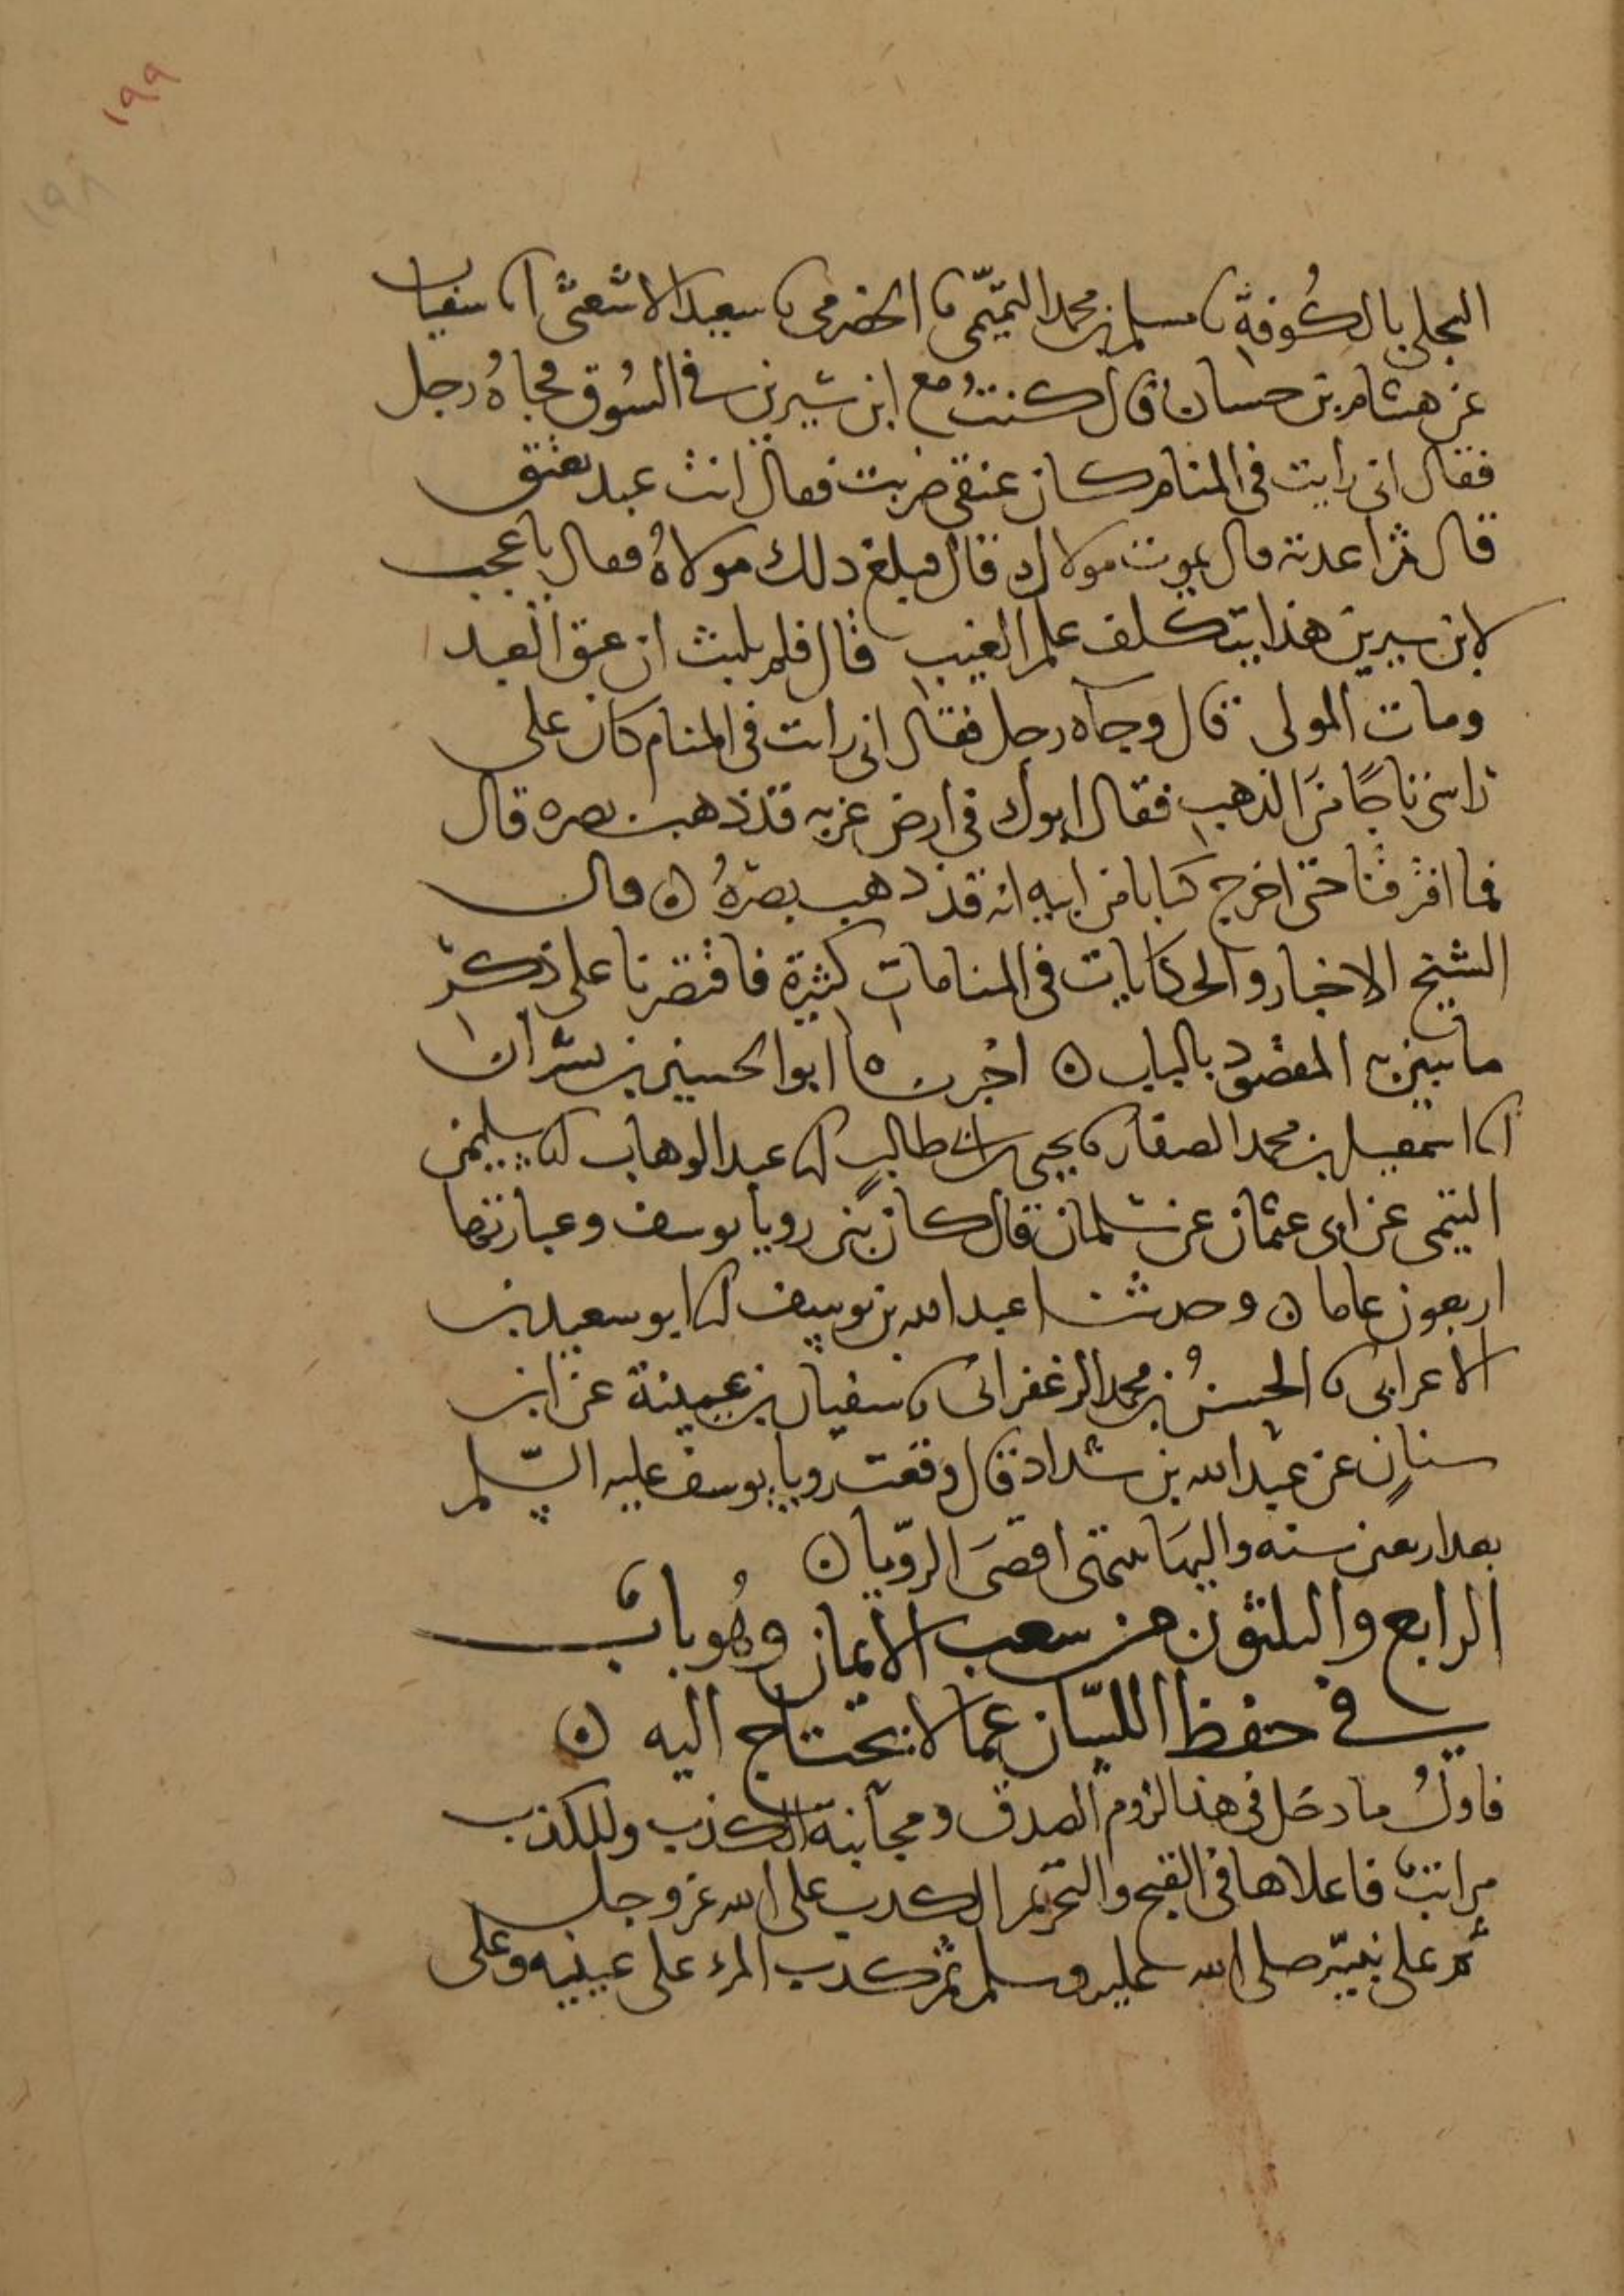 ١٩٩
١٩٨
البجلي بالكوفة نا مسلم بن محمد التميمي نا الحضرمي نا سعيد الاشعثي انا سفيان
عن هشام بن حسان قال كنت مع ابن سيرين في السُوق فجاهُ رجل
فقال اني رايت في المنام كان عنقي ضربت فقال انت عبد تعتق
قال ثم اعدته قال يموت مولاك قال فبلغ ذلك مولاهُ فقال يا عجب
لابن سيرين هذا يتكلف علم الغيب قال فلم يلبث ان عتق العبد
ومات المولى قال وجآه رجل فقال اني رايت في المنام كان على
راسي تاجًا من الذهب فقال ابوك في ارض غربه قد ذهب بصره قال
فما افترقنا حتى اخرج كتابا من ابيه انه قد ذهب بصرهُ ٥ قال
الشيخ الاخبار والحكايات في المنامات كثيرة فاقتصرنا على ذكر
ما تبين به المقصود بالباب ٥ اخبرنا ابو الحسين بن بشران
انا اسمعيل بن محمد الصفار نا يحيى بن ابي طالب انا عبد الوهاب انا سليمن
التيمي عن ابى عثمان عن سلمان قال كان بين رويا يوسف وعبارتها
اربعون عاما ٥ وحدثنا عبد الله بن يوسف انا ابو سعيد بن
الاعرابي نا الحسنُ بن محمد الزعفراني نا سفيان بن عيينة عن ابن
سنانٍ عن عبد الله بن شداد قال وقعت رويا يوسف عليه السّلم
بعد اربعين سنه واليها تنتهى اقصَى الروّيا ٥
الرابع والثلثون من شعب الايمان وهُو باب
في حفظ اللسّان عما لا يحتاج اليه ٥
فاولُ ما دخل في هذا لزوم الصدق ومجانبة الكذب وللكذب
مراتب فاعلاها في القبح والتحريم الكذب على الله عز وجل
ثم على نبيّه صلى الله عليه وسلم ثم كذب المرء على عينيه وعلى